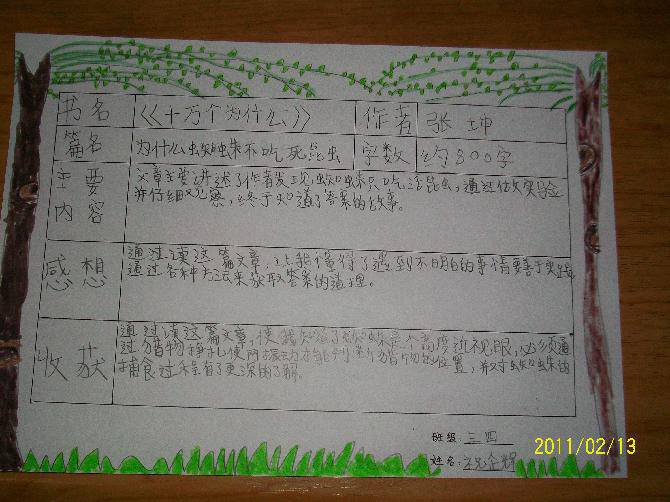 书名 《十万个为什么》 作者 张坤
篇名 为什么蜘蛛不吃死昆虫 字数 约800字
主要 文章主要讲述了作者发现蜘蛛只吃活昆虫，通过做实验
内容 并仔细观察，终于知道了答案的故事。
感想 通过读这篇文章，让我懂得了遇到不明白的事情要善于实践
通过各种方法来获取答案的道理。
收获 通过读这篇文章，使我知道了蜘蛛是个高度近视眼，必须通
过猎物挣扎使网振动才能判断猎物的位置，并对蜘蛛的
捕食过程有了更深的了解。
班级：三四
姓名：祝企辉
2011/02/13